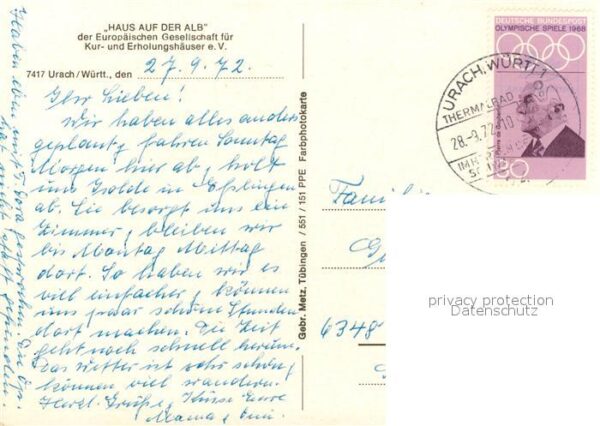 „HAUS AUF DER ALB"
der Europäischen Gesellschaft für
Kur- und Erholungshäuser e. V.
7417 Urach / Württ., den 27.9.72.
Ihr Lieben!
Wir haben alles anders
geplant, fahren Sonntag
Morgen hier ab, holt
uns Isolde in Esslingen
ab. Sie besorgt uns ein
Zimmer, bleiben wir
bis Montag Mittag
dort. So haben wir es
viel einfacher, können
uns paar schöne Stunden
dort machen. Die Zeit
geht noch schnell herum.
Das Wetter ist sehr schön,
können viel wandern.
Herzl. Grüße, Küsse Eure
Mama,
Haben eben mit gesprochen. Die Op.
hat nicht statt gefunden.
Gebr. Metz, Tübingen / 551 / 151 PPE Farbphotokarte
DEUTSCHE BUNDESPOST
OLYMPISCHE SPIELE 1968
Pierre de Coubertin
URACH, WÜRTT 1
THERMALBAD
28.-9.72-10
IM
Famili
6348
privacy protection
Datenschutz